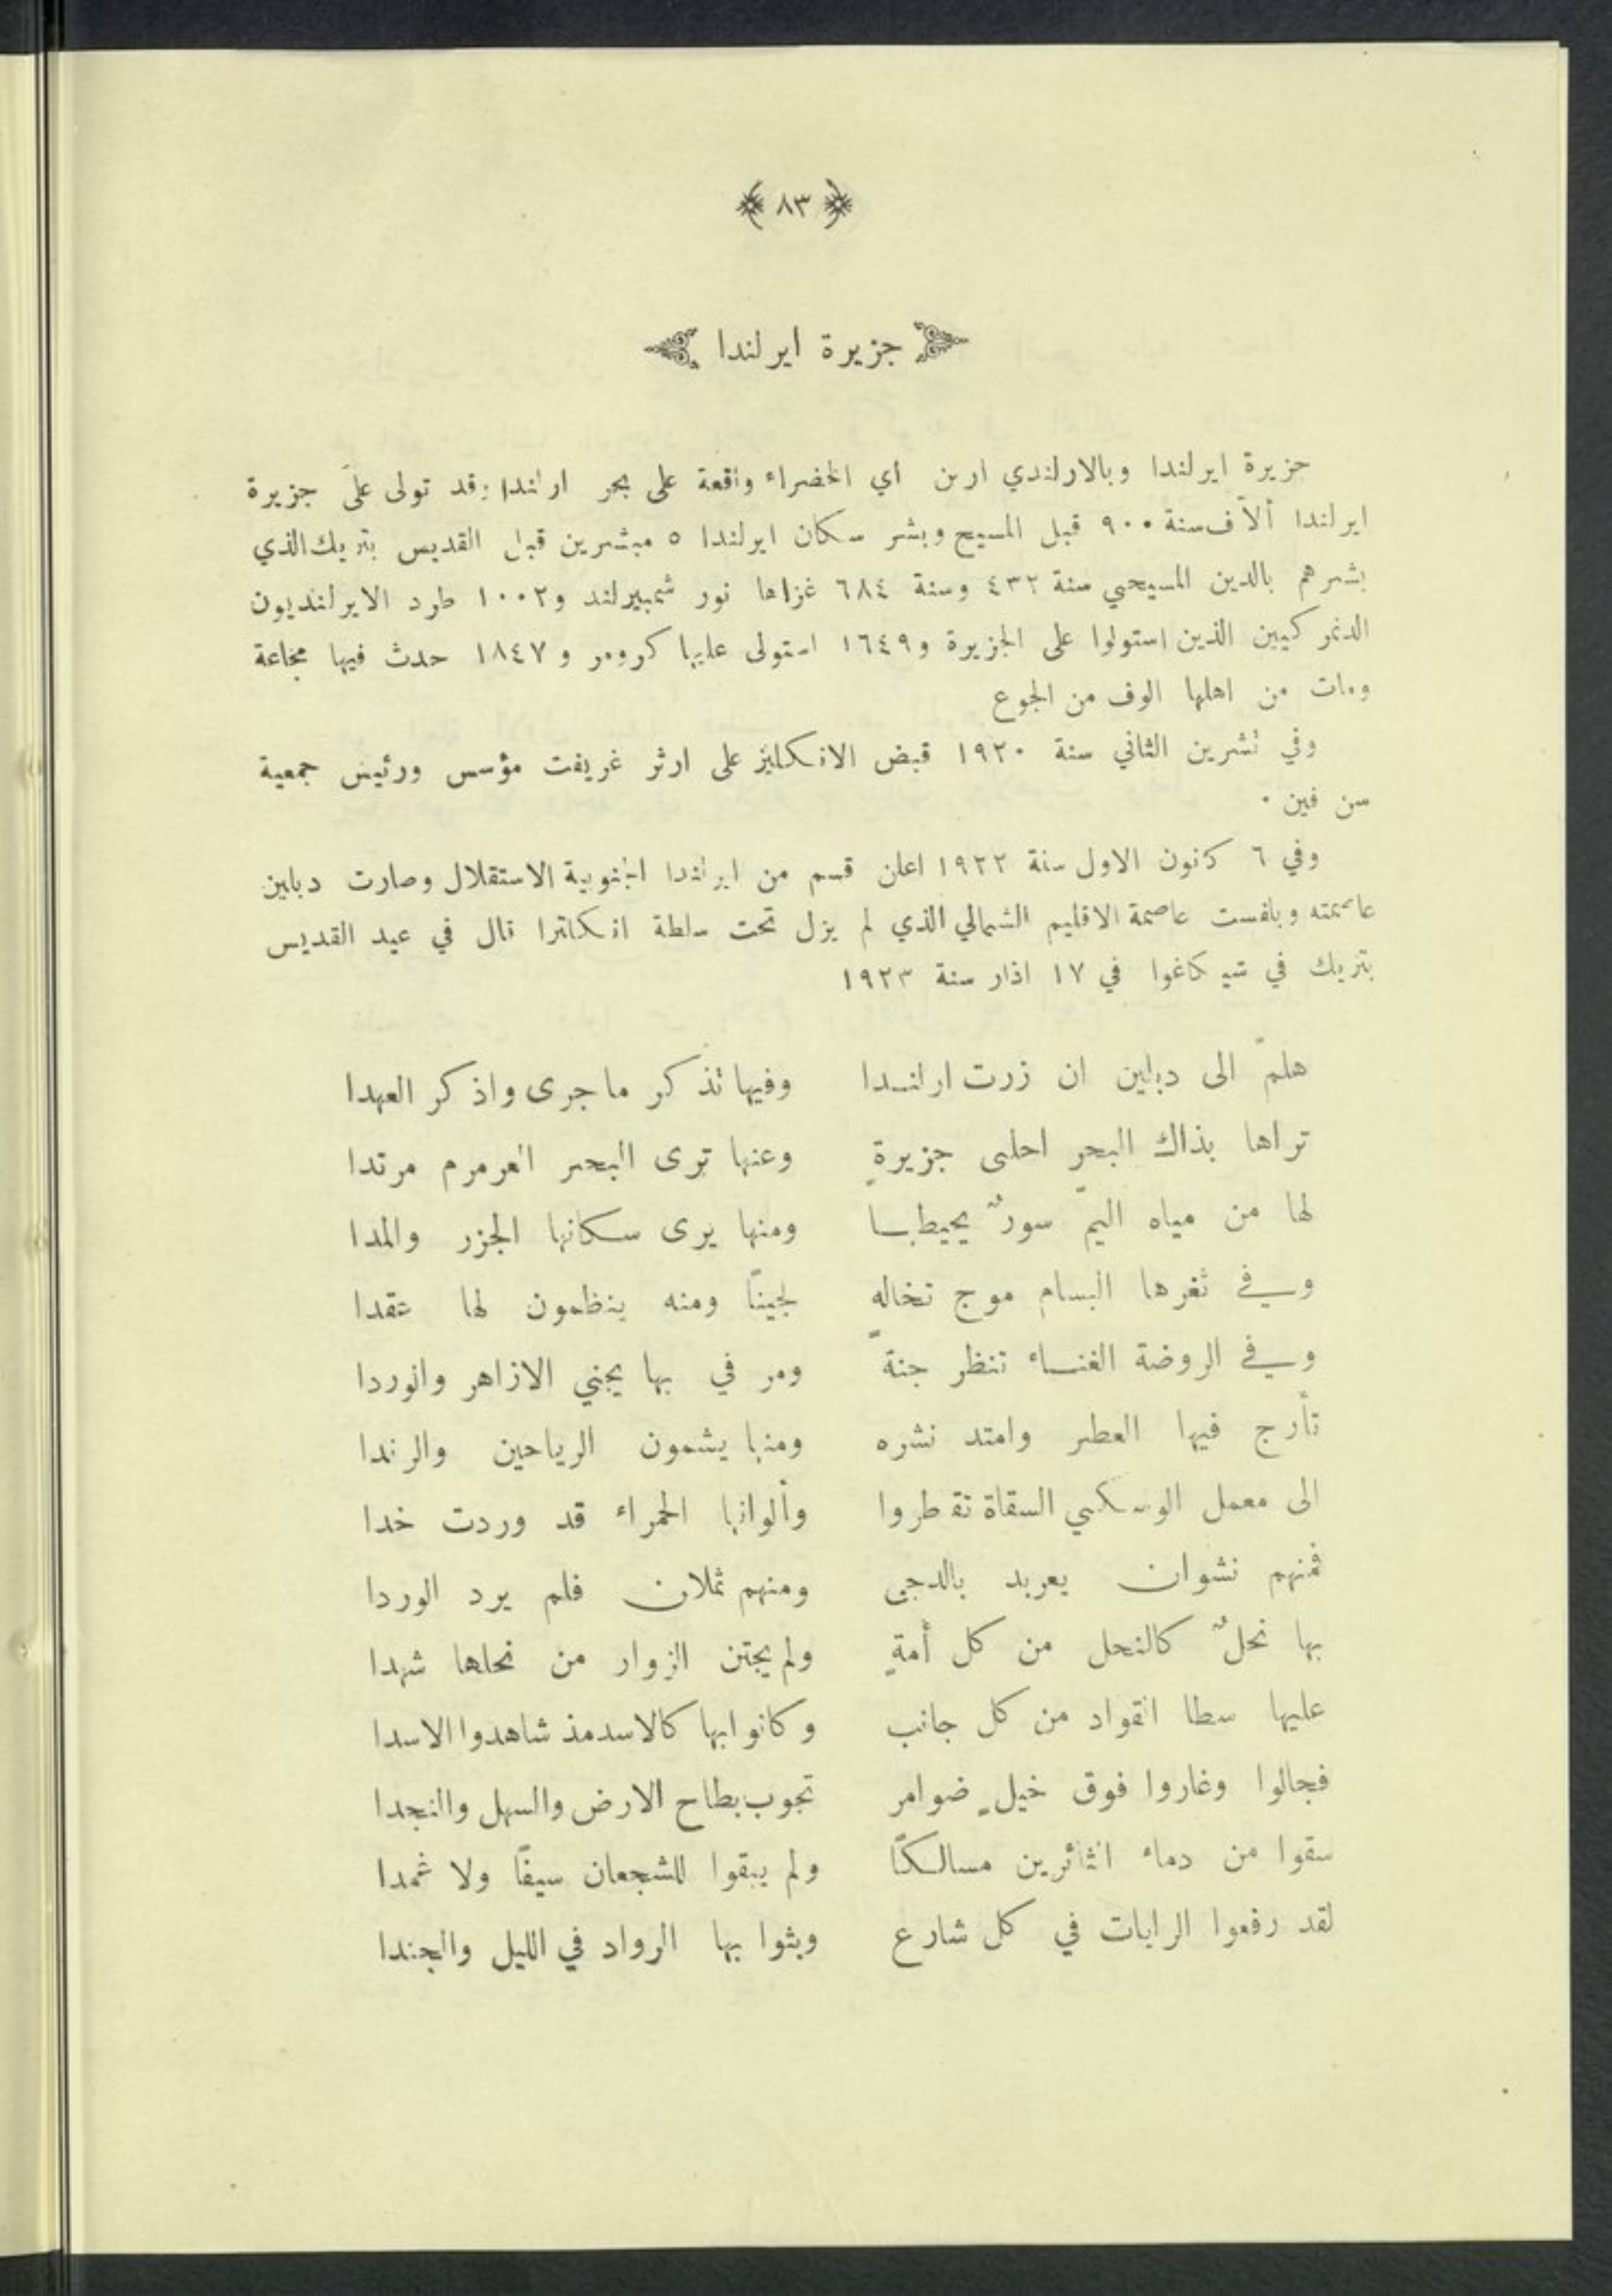 ٨٣
جزيرة ايرلندا
جزيرة ايرلندا وبالارلندي ارىن أي الخضراء واقعة على بحر ارلندا وقد تولى على جزيرة
ايرلندا ألاف سنة ٩٠٠ قبل المسيح وبشر سكان ايرلندا ٥ مبشرين قبل القديس بتريك الذي
بشرهم بالدين المسيحي سنة ٤٣٢ وسنة ٦٨٤ غزاها نور ثمبيرلند و١٠٠٢ طرد الايرلنديون
الدنمركيين الذين استولوا على الجزيرة و١٦٤٩ استولى عليها كرومر و ١٨٤٧ حدث فيها مجاعة
ومات من اهلها الوف من الجوع
وفي تشرين الثاني سنة ١٩٢٠ قبض الانكليز على ارثر غريفت مؤسس ورئيس جمعية
سن فين ٠
وفي ٦ كانون الاول سنة ١٩٢٢ اعلن قسم من ايرلندا الجنوبية الاستقلال وصارت دبلين
عاصمته وبلفست عاصمة الاقليم الشمالي الذي لم يزل تحت سلطة انكلترا قال في عيد القديس
بتريك في شيكاغوا في ١٧ اذار سنة ١٩٢٣
هلمّ الى دبلين ان زرت ارلندا وفيها تذكر ما جرى واذكر العهدا
تراها بذاك البحرِ احلى جزيرةٍ وعنها ترى البحر العرمرم مرتدا
لها من مياه اليمّ سورٌ يحيطها ومنها يرى سكانها الجزر والمدا
وفي ثغرها البسام موج تخالهِ لجينًا ومنه ينظمون لها عقدا
وفي الروضة الغناء تنظر جنةً ومر في بها يجني الازاهر والوردا
تأرج فيها العطر وامتد نشره ومنها يشمون الرياحين والرندا
الى معمل الوسكي السقاة تقطروا وألوانها الحمراء قد وردت خدا
فمنهم نشوان يعربد بالدجى ومنهم ثملان فلم يرد الوردا
بها نحلٌ كالنحل من كل أمةٍ ولم يجتن الزوار من نحلها شهدا
عليها سطا القواد من كل جانب وكانوا بها كالاسد مذ شاهدوا الاسدا
فجالوا وغاروا فوق خيلٍ ضوامر تجوب بطاح الارض والسهل والنجدا
سقوا من دماء الثائرين مسالكًا ولم يبقوا للشجعان سيفًا ولا غمدا
لقد رفعوا الرايات في كل شارع وبثوا بها الرواد في الليل والجندا